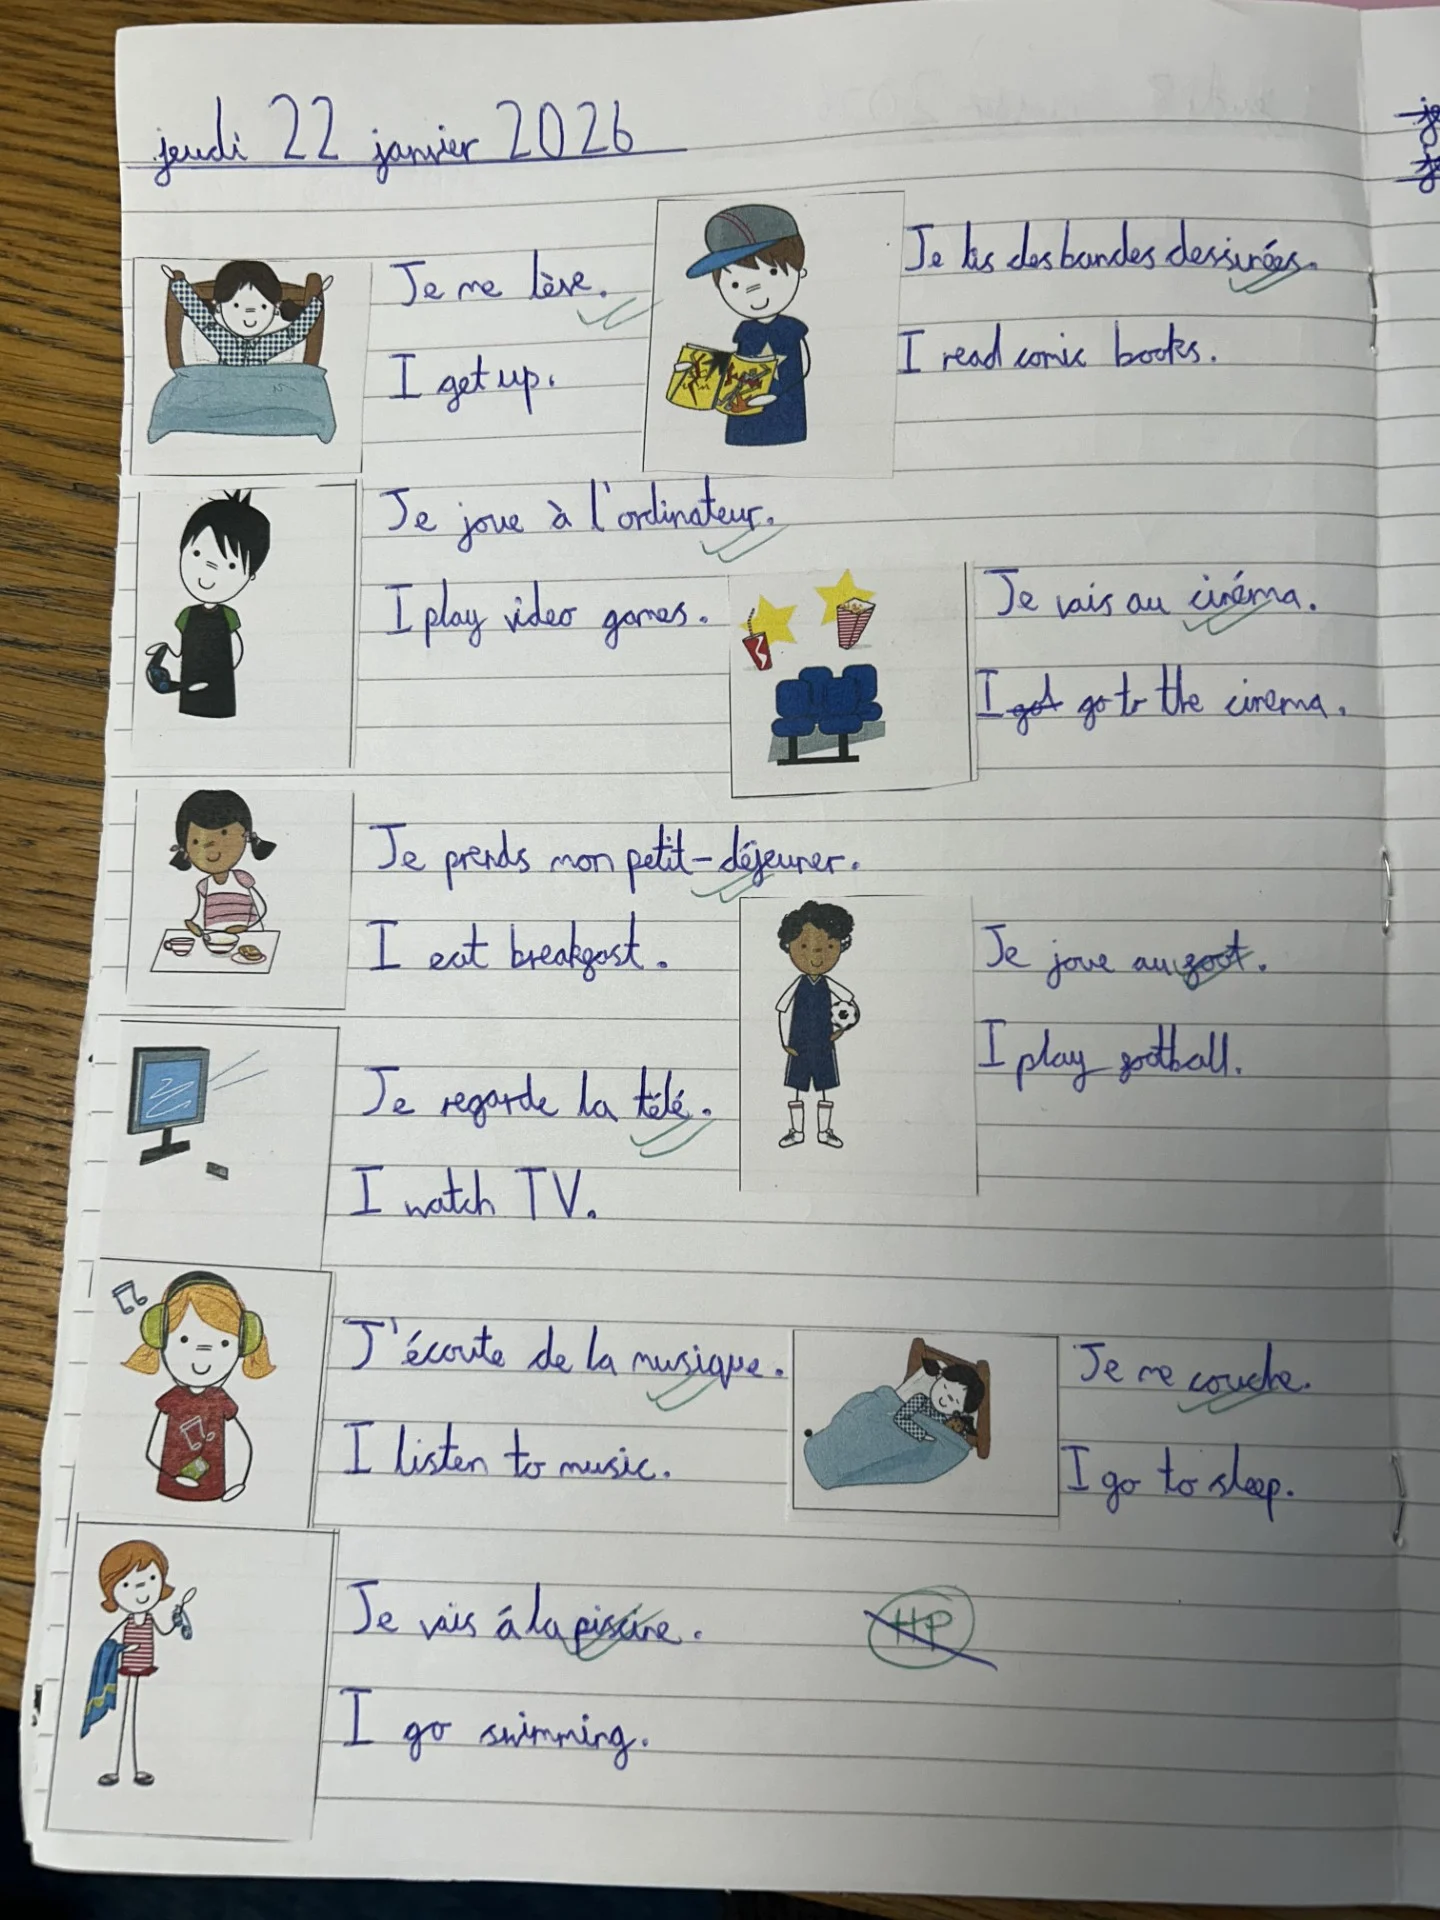 jeudi 22 janvier 2026
Je me lève.
I get up.
Je lis des bandes dessinées.
I read comic books.
Je joue à l'ordinateur.
I play video games.
Je vais au cinéma.
I got go to the cinema.
Je prends mon petit-déjeuner.
I eat breakfast.
Je joue au foot.
I play football.
Je regarde la télé.
I watch TV.
J'écoute de la musique.
I listen to music.
Je me couche.
I go to sleep.
Je vais á la piscine.
I go swimming.
HP